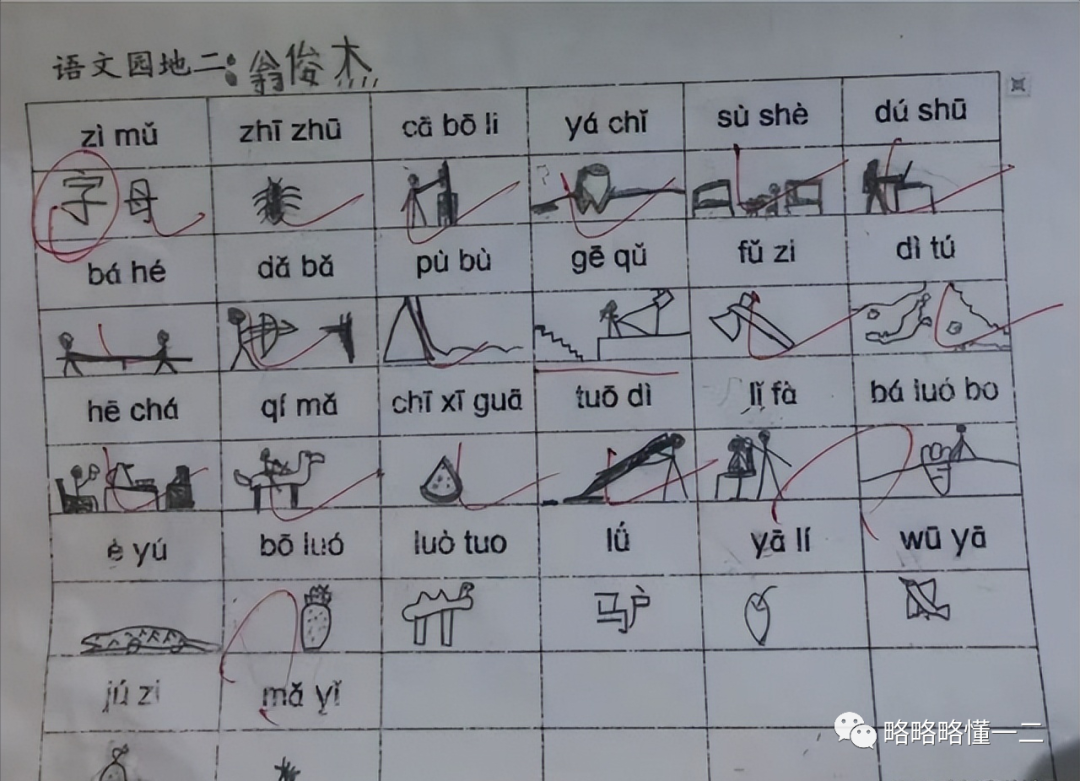 语文园地二：翁俊杰
zì mǔ zhī zhū cā bō li yá chǐ sù shè dú shū
字母
bá hé dǎ bǎ pù bù gē qǔ fǔ zi dì tú
hē chá qí mǎ chī xī guā tuō dì lǐ fà bá luó bo
è yú bō luó luò tuo lǘ yā lí wū yā
马户
jú zi mǎ yǐ
略略略懂一二